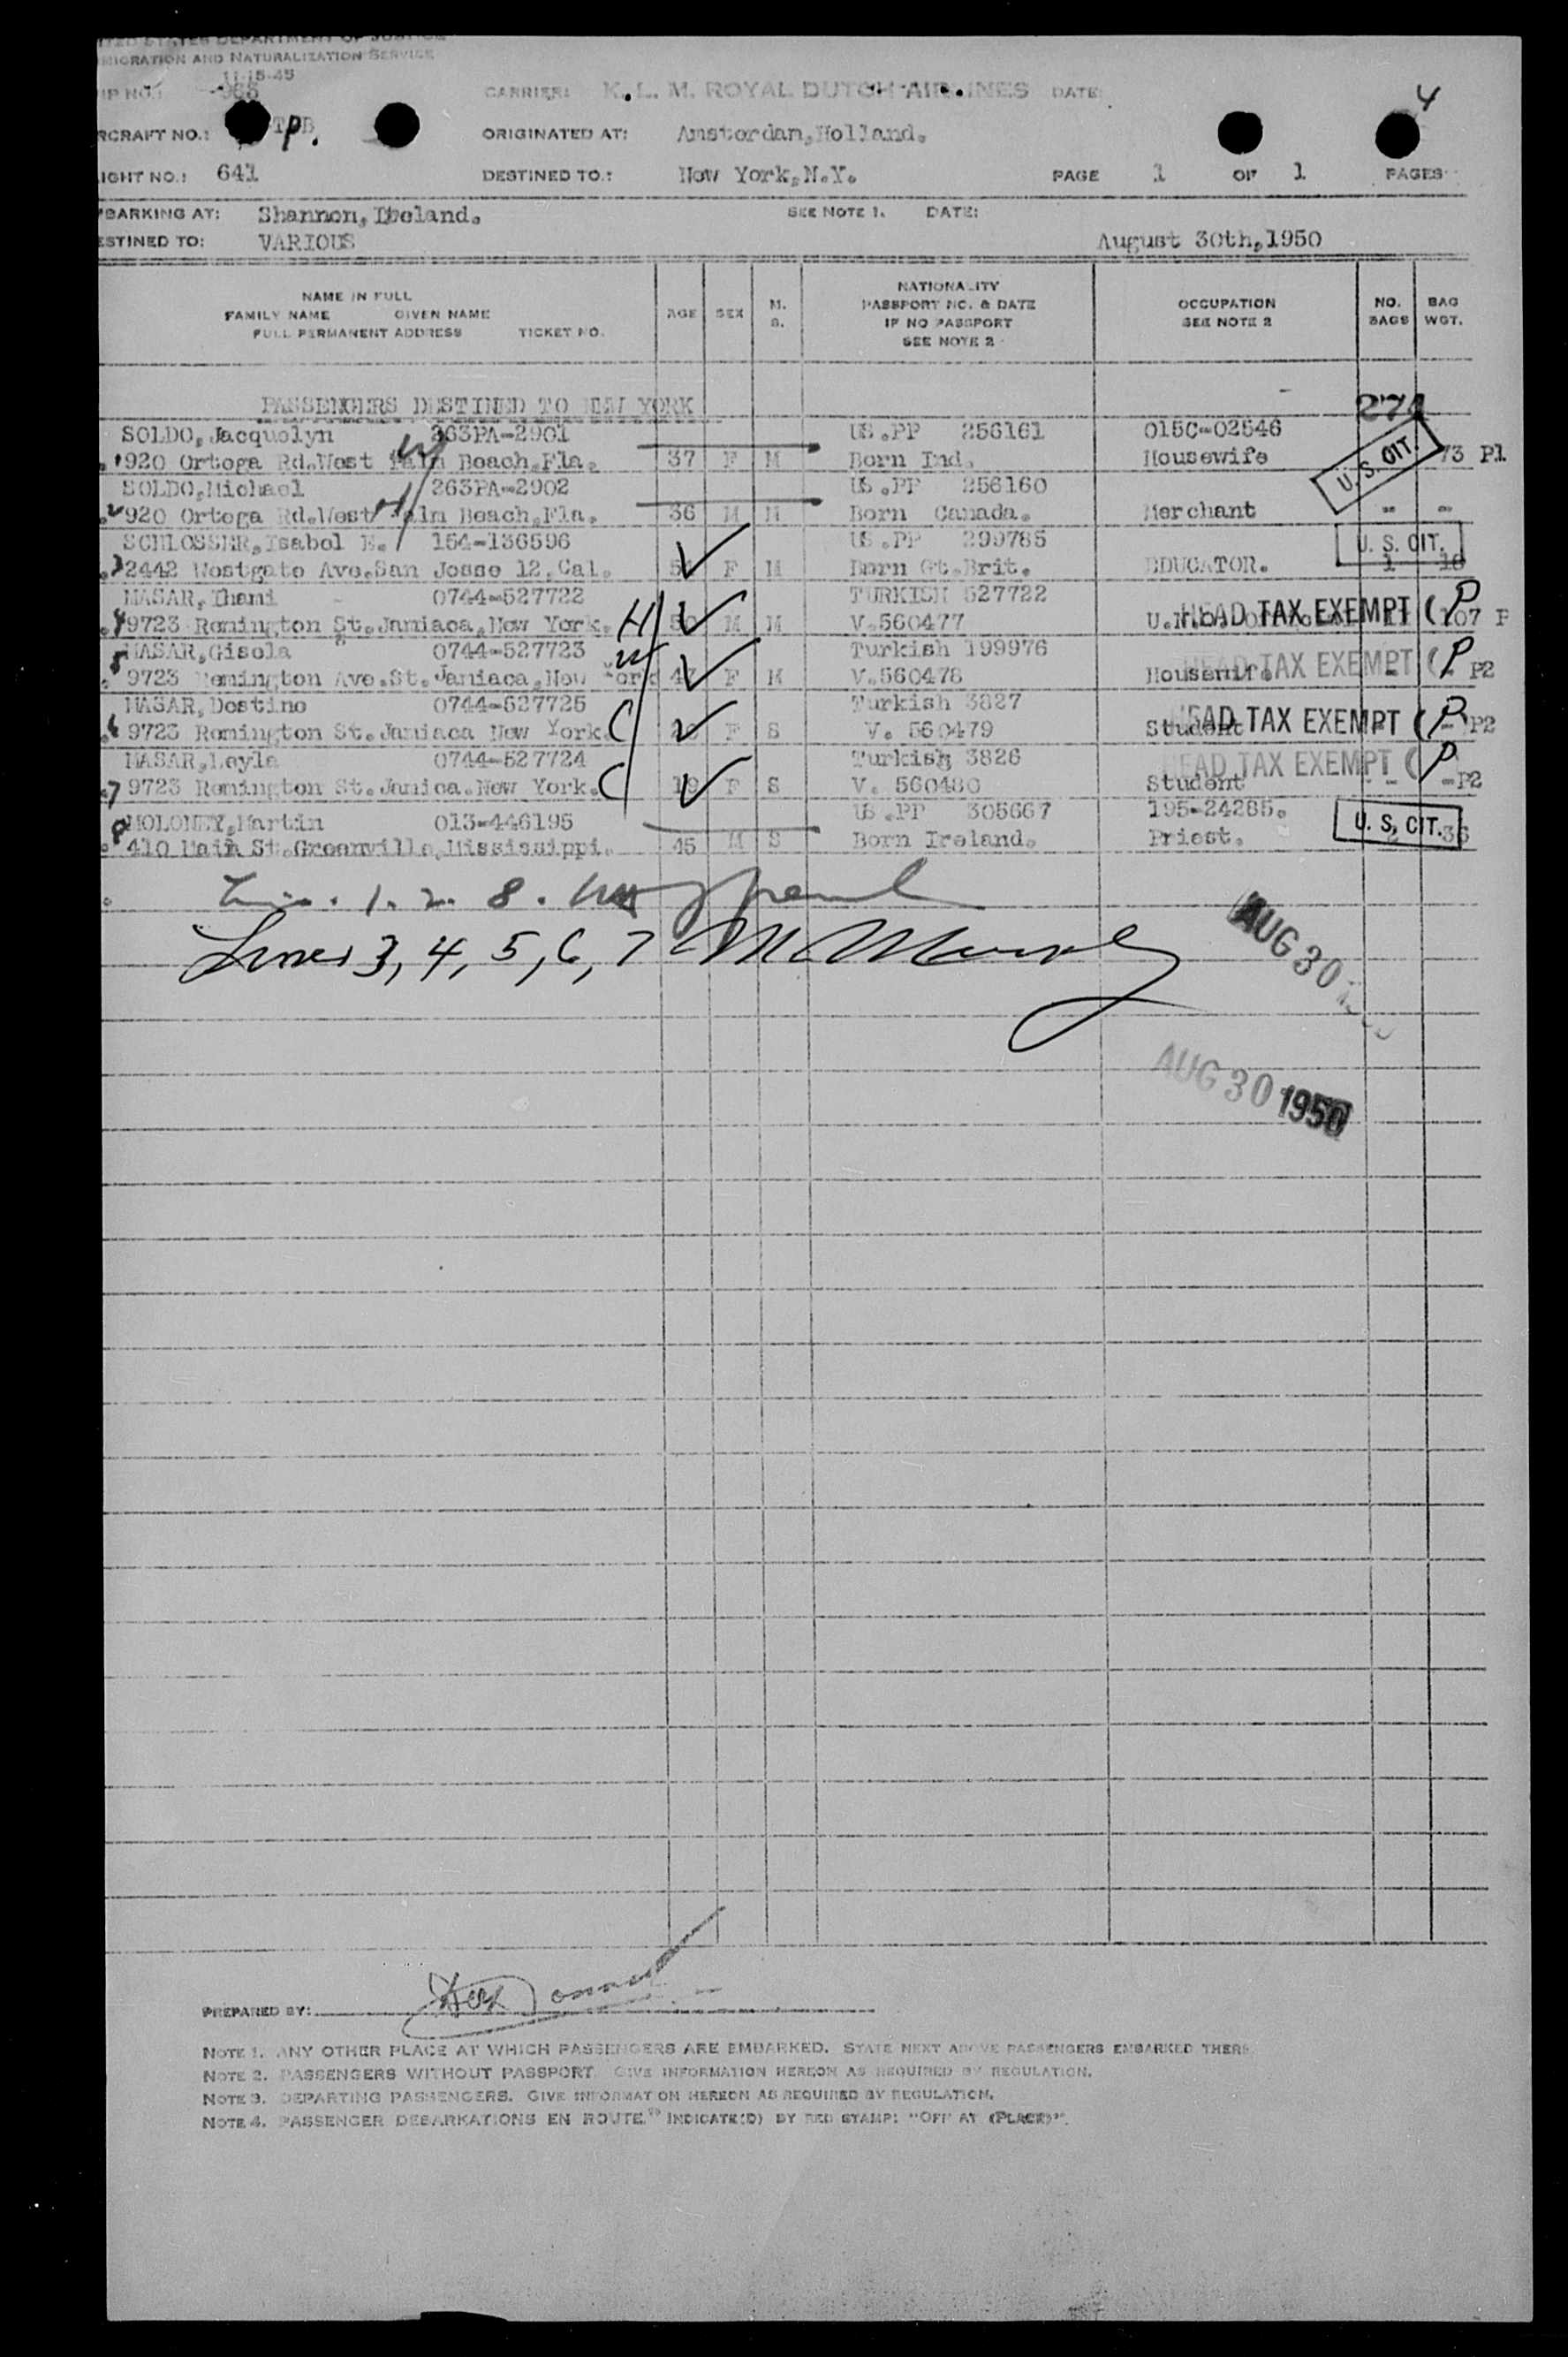 UNITED STATES DEPARTMENT OF JUSTICE
IMMIGRATION AND NATURALIZATION SERVICE
11-15-45
IP NO.:
CARRIER: K.L.M. ROYAL DUTCH AIRLINES DATE
4
RCRAFT NO.: P. ORIGINATED AT: Amsterdam,Holland.
IGHT NO.: 641 DESTINED TO.: New York,N.Y. PAGE 1 OF 1 PAGES
BARKING AT: Shannon,Ireland. SEE NOTE 1. DATE:
ESTINED TO: VARIOUS August 30th,1950
NAME IN FULL
FAMILY NAME GIVEN NAME
FULL PERMANENT ADDRESS TICKET NO.
AGE SEX M. S.
NATIONALITY
PASSPORT NO. & DATE
IF NO PASSPORT
SEE NOTE 2
OCCUPATION
SEE NOTE 2
NO. BAGS
BAG WGT.
PASSENGERS DESTINED TO NEW YORK
SOLDO,Jacquelyn 263PA-2901 US.PP 256161 015C-02546
1 920 Ortega Rd.West Palm Beach,Fla. 37 F M Born Ind. Housewife U. S. CIT. 73 Pl
SOLDO,Michael 263PA-2902 US.PP 256160
2 920 Ortega Rd.West Palm Beach,Fla. 36 M M Born Canada. Merchant - -
SCHLOSSER,Isabel E. 154-136596 US.PP 299785 U. S. CIT.
3 2442 Westgate Ave.San Josse 12,Cal. F M Born Gt.Brit. EDUCATOR. 1 16
MASAR,Thami 0744-527722 TURKISH 527722
4 9723 Remington St.Jamiaca,New York. H M M V.560477 HEAD TAX EXEMPT (P 107 P
MASAR,Gisela 0744-527723 W Turkish 199976
5 9723 Remington Ave.St.Jamiaca,New York 47 F M V.560478 Housewife HEAD TAX EXEMPT (P P2
MASAR,Destine 0744-527725 Turkish 3827
6 9723 Remington St.Jamiaca New York. C F S V. 560479 Student HEAD TAX EXEMPT (P P2
MASAR,Leyla 0744-527724 Turkish 3826
7 9723 Remington St.Jamica.New York. C 19 F S V. 560480 Student HEAD TAX EXEMPT (P -P2
MOLONEY,Martin 013-446195 US.PP 305667 195-24285.
8 410 Main St.Greenville,Mississippi. 45 M S Born Ireland. Priest. U. S. CIT. 36
1. 2. 8.
Lines 3, 4, 5, 6, 7
AUG 30
AUG 30 1950
PREPARED BY:
NOTE 1. ANY OTHER PLACE AT WHICH PASSENGERS ARE EMBARKED. STATE NEXT ABOVE PASSENGERS EMBARKED THERE
NOTE 2. PASSENGERS WITHOUT PASSPORT. GIVE INFORMATION HEREON AS REQUIRED BY REGULATION.
NOTE 3. DEPARTING PASSENGERS. GIVE INFORMATION HEREON AS REQUIRED BY REGULATION.
NOTE 4. PASSENGER DEBARKATIONS EN ROUTE. INDICATE(D) BY RED STAMP: "OFF AT (PLACE)".